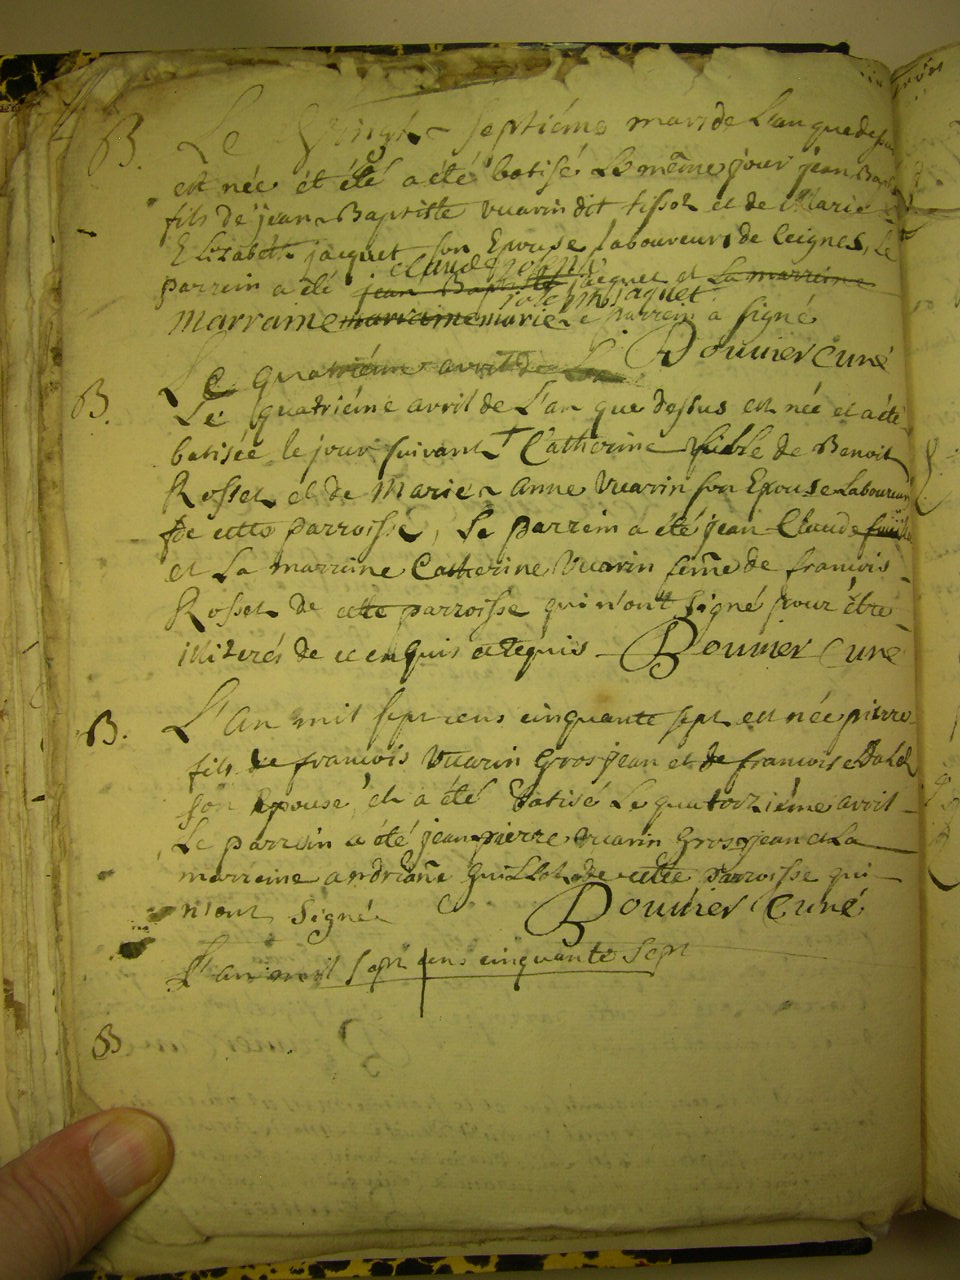 B. Le Vingt Septiéme mars de L'an que dessus
est née et été a été batisé Le même jour jean Bapt
fils de jean Baptiste vuarin dit tissot et de Marie
Elizabeth jacquet son Epouse Laboureurs de Ceignes, Le
claude joseph
parrein a été jean Baptiste jacquet et La marreine
joseph jaquet
marraine marraine marie Le Parrein a signé
Bouvier curé
Le quatriéme avril de L'an
B. Le quatriéme avril de L'an que dessus est née et a été
batisée le jour suivant Catherine fille de Benoit
Rosset et de Marie Anne Vuarin son Epouse Laboureurs
de cette parroisse, Le parrein a été jean Claude
et La marraine Catherine Vuarin feme de francois
Rosset de cette parroisse qui n'ont signé pour être
illiterés de ce enquis et requis Bouvier Curé
B. L'an mil sept cens cinquante sept est née pierre
fils de francois Vuarin Grosjean et de francoise
son Epouse et a été Batisé Le quatorziéme avril
Le parrein a été jean pierre vuarin Grosjean et La
marreine andriane Guillot de cette Parroisse qui
n'ont Signé Bouvier Curé
L'an mil sept cens cinquante sept
B